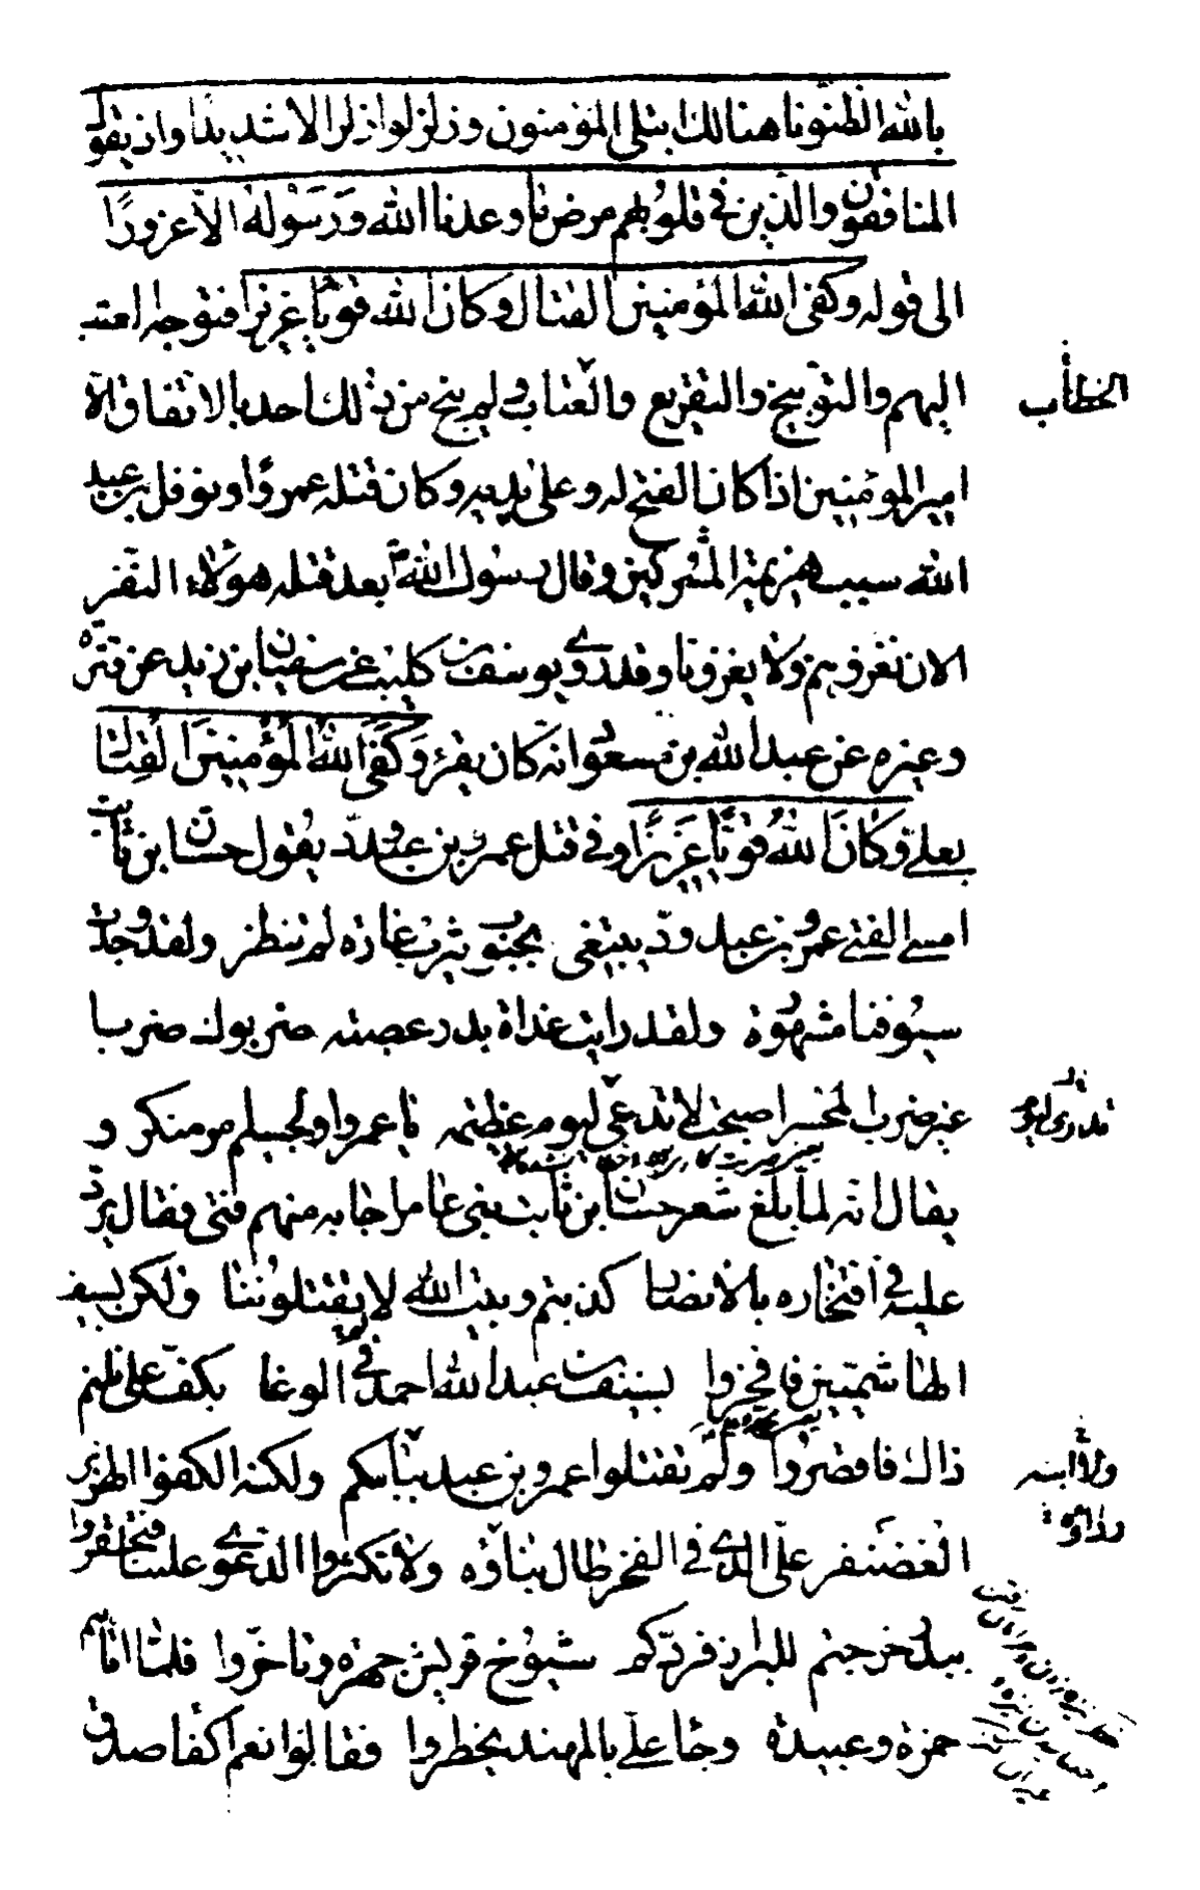 بالله الظنونا هنالك ابتلى المؤمنون وزلزلوا زلزالا شديدا واذ يقول
المنافقون والذين في قلوبهم مرض ما وعدنا الله وَرَسُولُهُ الّا غرورًا
الى قوله وكفى الله المؤمنين القتال وكان الله قويًّا عزيزا فتوجه العتب
اليهم والتوبيخ والتقريع والعتاب ولم ينج من ذلك احد بالاتفاق الّا
الخطاب
امير المؤمنين اذا كان الفتح له وعلى يديه وكان قتله عمروًا ونوفل بن عبد
الله سبب هزيمة المشركين وقال رسول الله ص بعد قتله هؤلاء النفر
الان نغزوهم ولا يغزونا وقد روى يوسف بن كليب عن سفيان بن زيد عن مرّة
وغيره عن عبد الله بن مسعود انه كان يقرء وَكَفَى اللهُ الْمُؤْمِنِينَ الْقِتالَ
بعلي وَكَانَ اللهُ قَوِيًّا عَزِيزًا وفي قتل عمرو بن عبدودّ يقول حسّان ابن ثابت
امسى الفتى عمرو بن عبد ودّ يبتغي بجنوب يثرب غارة لم تنظر ولقد وجدت
سيوفنا مشهورة ولقد رايت غداة بدر عصبة ضربوك ضربا
غير ضرب المخسر اصبحت لا تدعى ليوم عظيمة يا عمرو او لجسيم امر منكر و
يقال انه لما بلغ شعر حسّان ابن ثابت بني عامر اجابه منهم فتى فقال يردّ
عليه في افتخاره بالانصار كذبتم وبيت الله لا تقتلوننا ولكن بسيف
الهاشميّين فافخروا بسيف بن عبد الله احمد في الوغا بكفّ علي نلتم
ذاك فاقصروا ولم تقتلوا عمرو بن عبد ببأسكم ولكنه الكفؤ الهزبر
الغضنفر عليّ الذي في الفخر طال بناؤه ولا تكثروا الدعوى علينا فتحقروا
ببدر خرجتم للبراز فردّكم شيوخ قريش جهرة وتاخّروا فلمّا اتاهم
حمزة وعبيدة وجا عليّ بالمهند يخطروا فقالوا نعم اكفا صدق